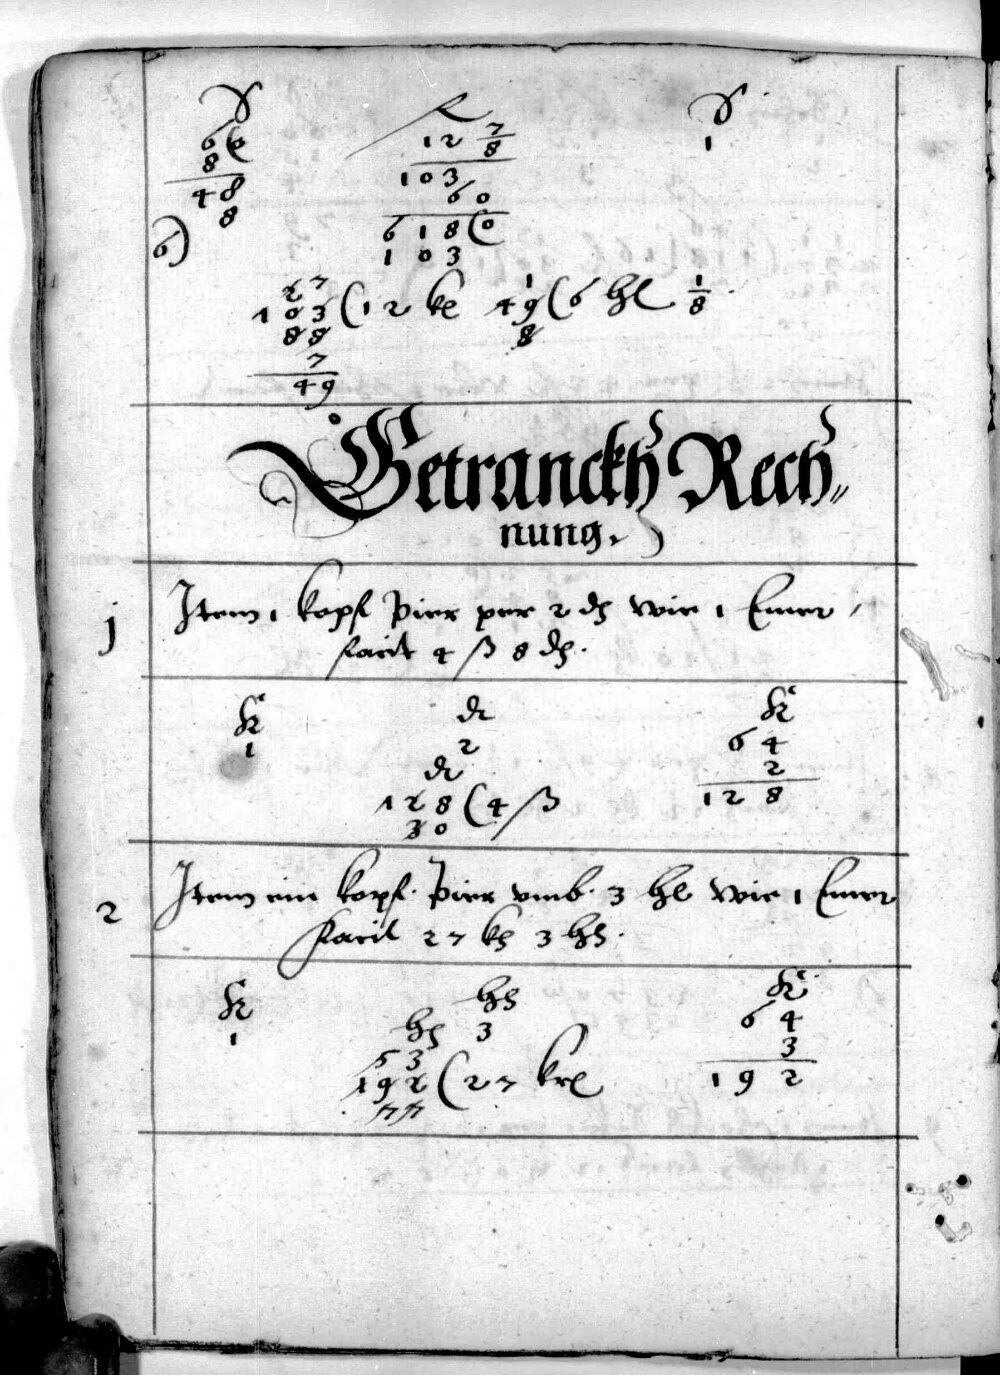 1
12 7/8
6(0
8
103
48
60
8
618(0
6)
103
27
103 (12 kr 49 (6 hl 1/8
88
8
7
49
Getranckh Rech„
nung.
1 Item 1 kopf Pier per 2 dh wie 1 Emer
facit 4 ß 8 dh.
K
1
2
64
2
128
128 (4 ß
30
2 Item ein kopf Pier vmb 3 hl wie 1 Emer
facit 27 kh 3 hh.
K hh K
1 3 64
hh
3
192
53
192 (27 krl
77